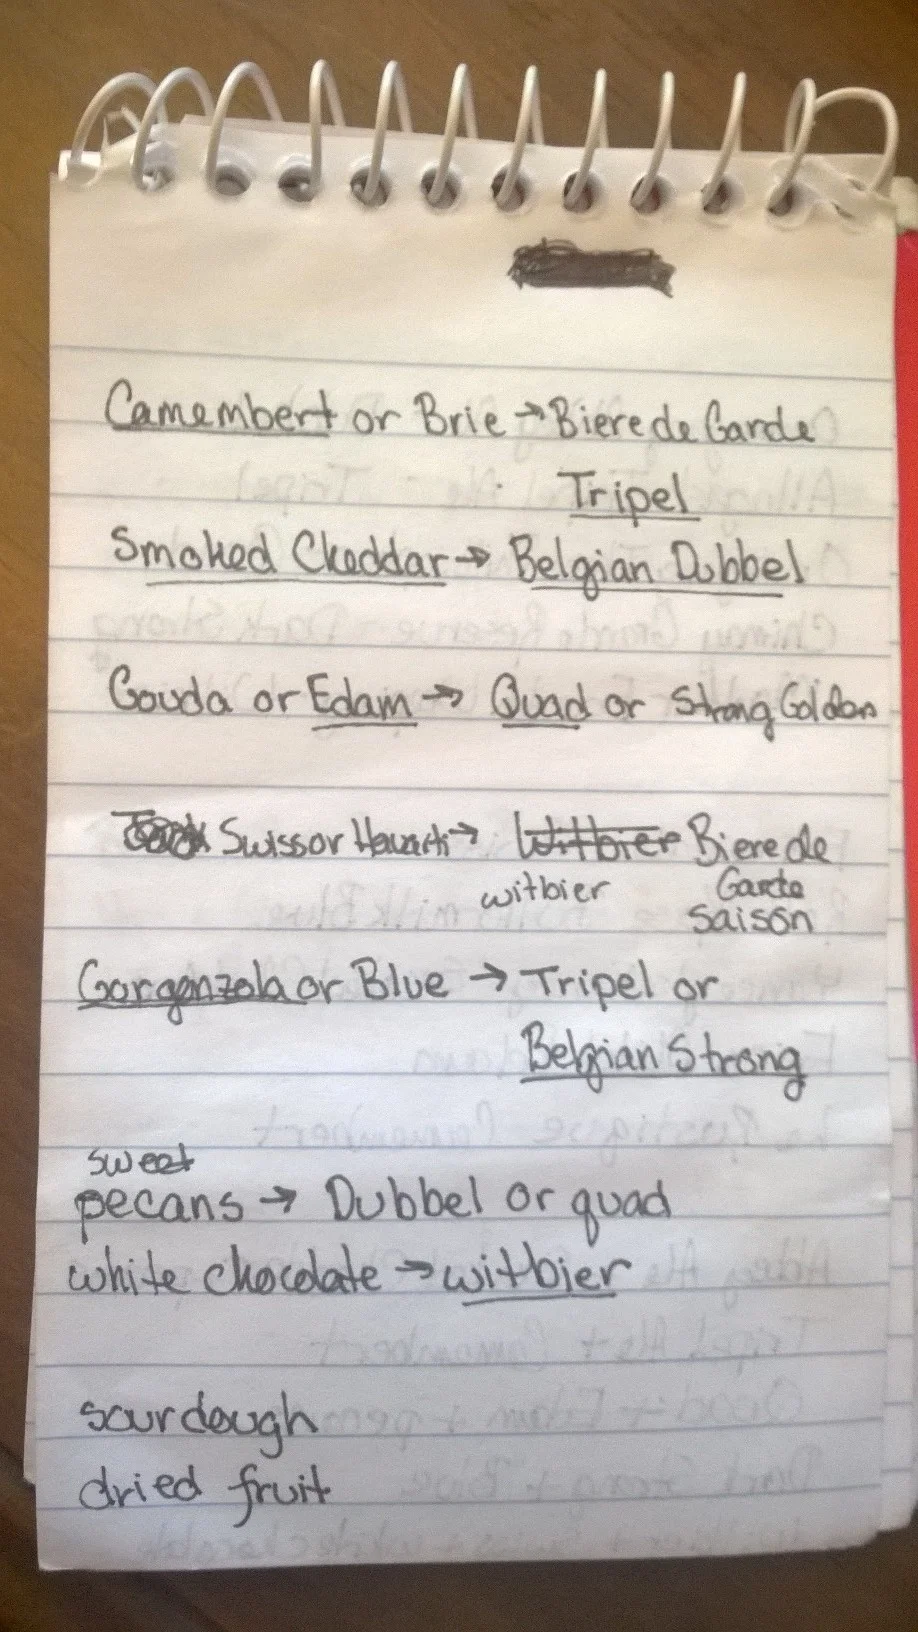 Camembert or Brie → Biere de Garde
Tripel
Smoked Cheddar → Belgian Dubbel
Gouda or Edam → Quad or Strong Golden
Swiss or Havarti → Witbier Biere de
witbier Garde
saison
Gorgonzola or Blue → Tripel or
Belgian Strong
sweet
pecans → Dubbel or quad
white chocolate → witbier
sourdough
dried fruit